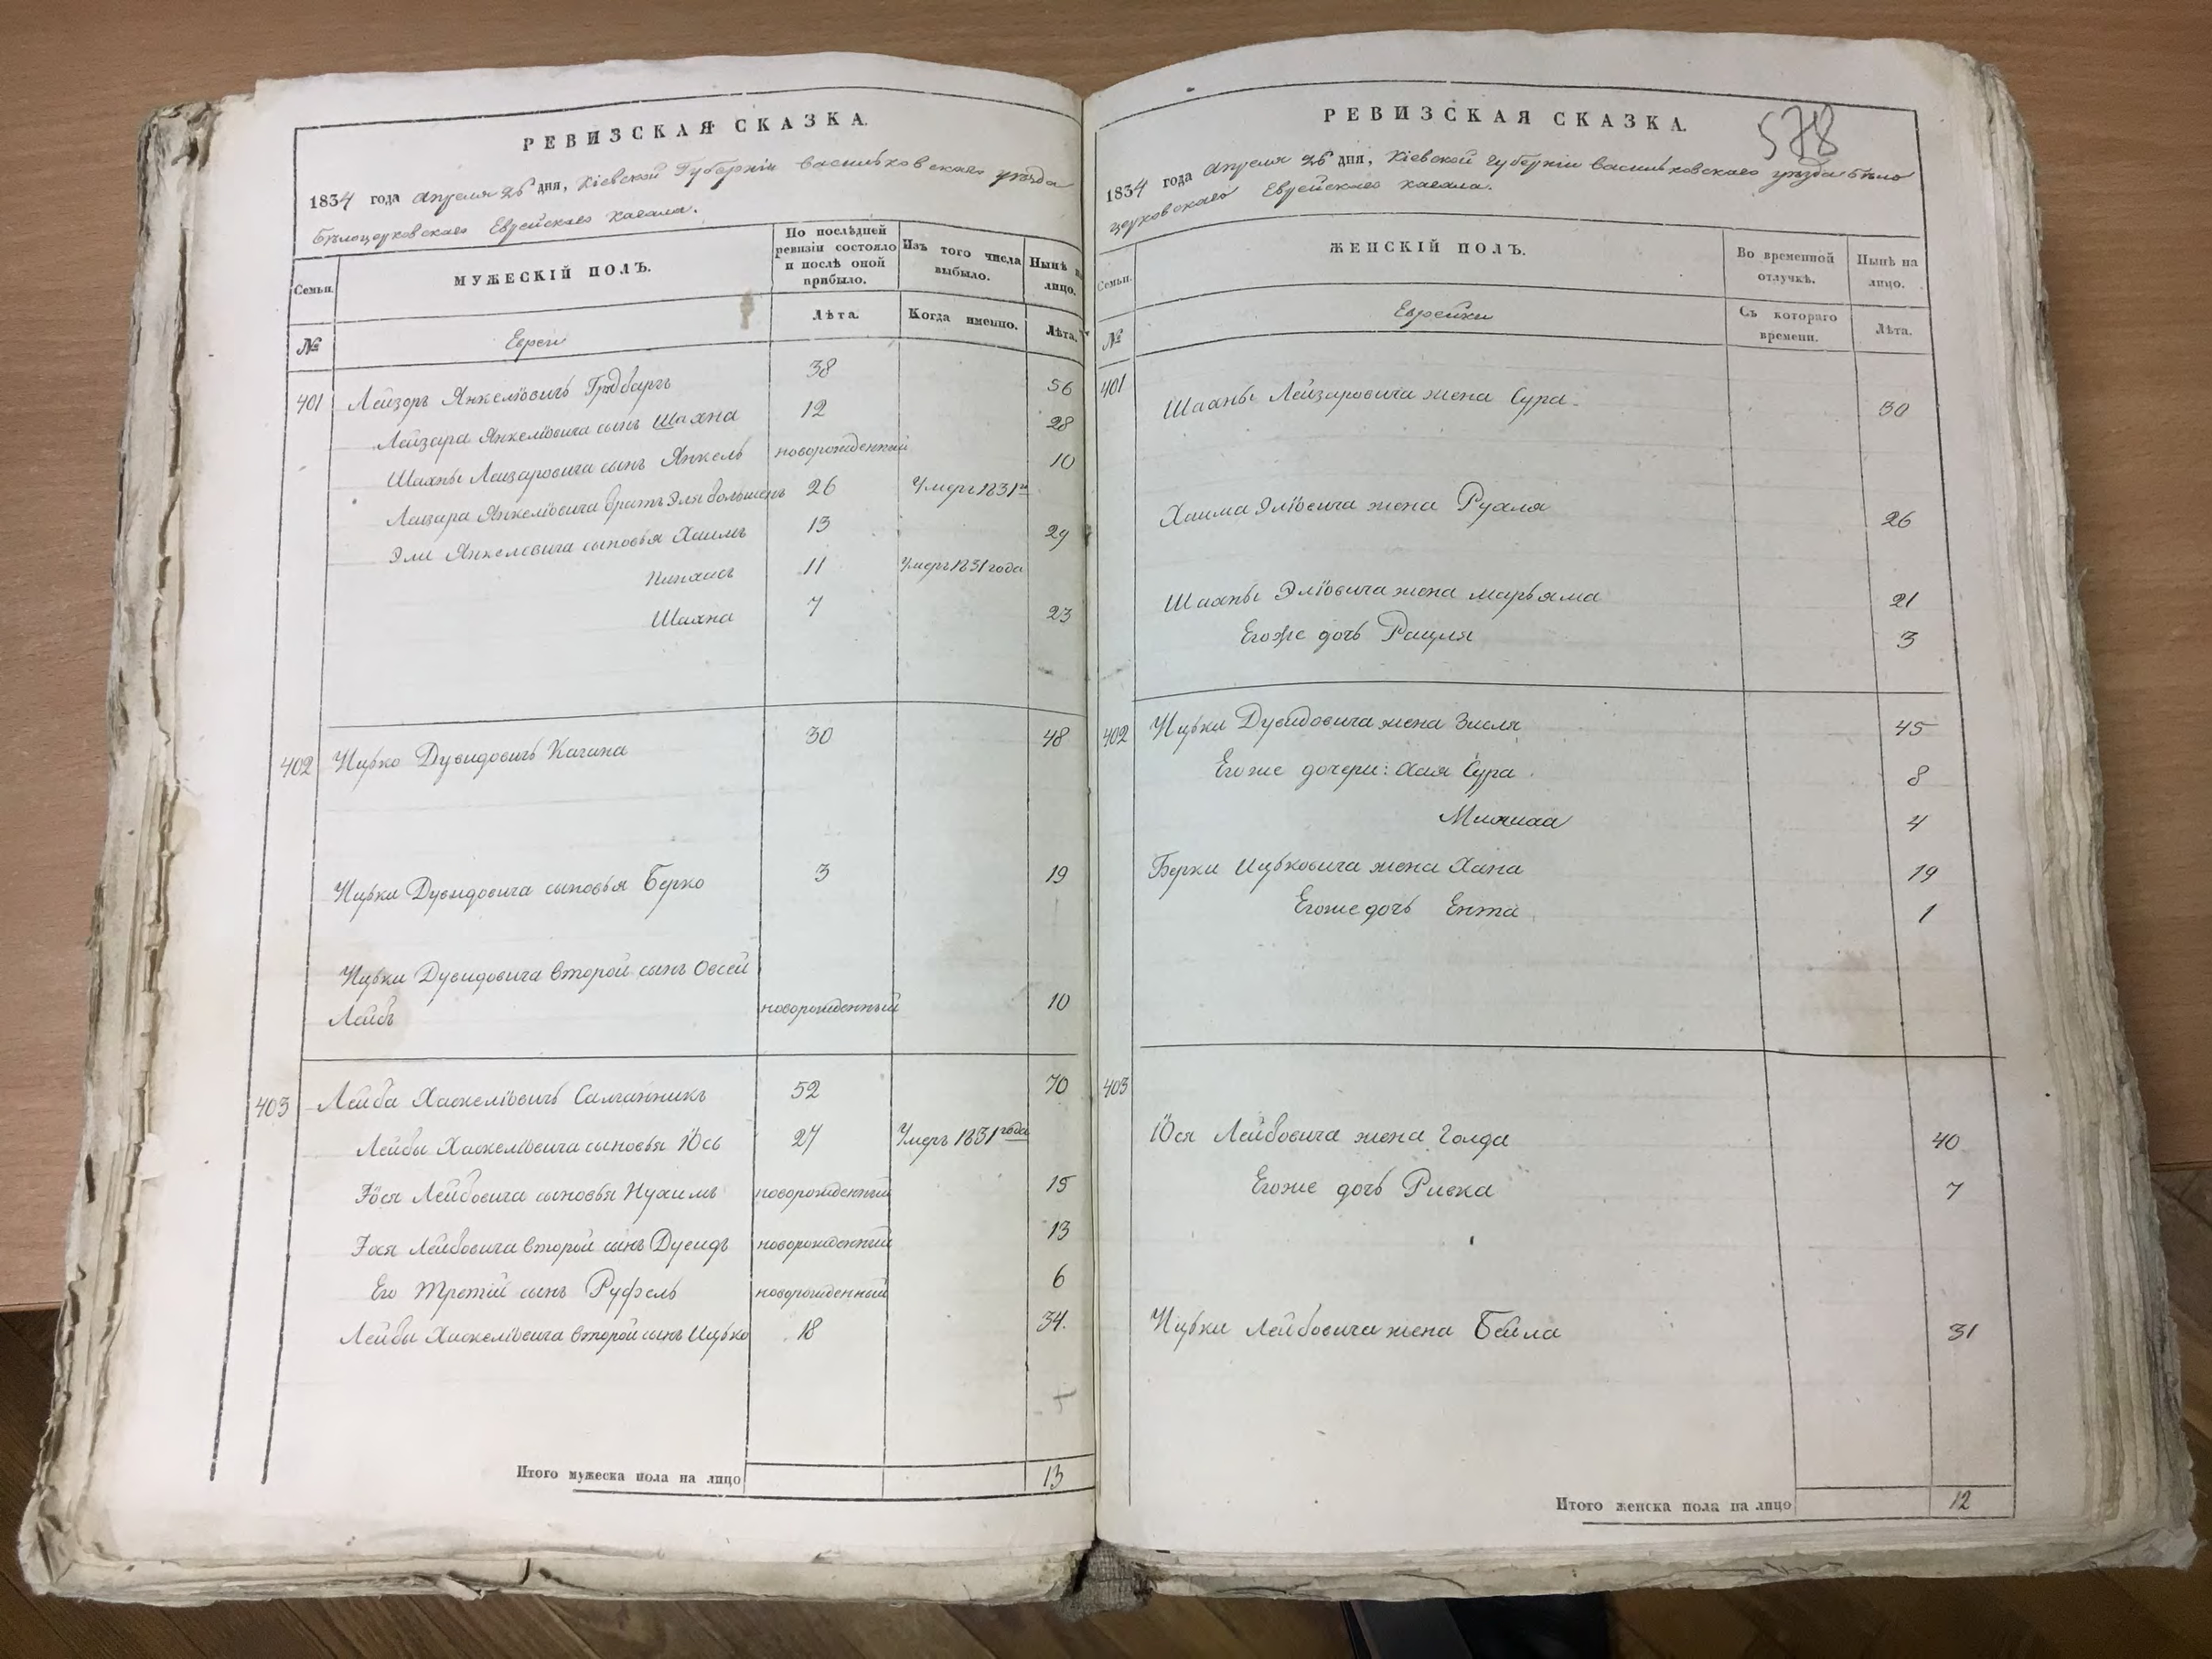 РЕВИЗСКАЯ СКАЗКА.
1834 года апреля 26 дня, Кіевской Губерніи васильковскаго уѣзда
Бѣлоцерковскаго Еврейскаго кагала.
Семьи.
МУЖЕСКІЙ ПОЛЪ.
По послѣдней ревизіи состояло и послѣ оной прибыло.
Изъ того числа выбыло.
Нынѣ на лицо.
№
Евреи
Лѣта.
Когда именно.
Лѣта.
401 Лейзоръ Янкеліовичъ 38 56
Лейзара Янкеліовича сынъ Шахна 12 28
Шахны Лейзаровича сынъ Янкель новорожденный 10
Лейзара Янкеліовича братъ Эля большенъ 26 Умеръ 1831 го
Эли Янкелевича сыновья Хаимъ 13 29
Пинхасъ 11 Умеръ 1831 года
Шахна 7 23
402 Ицько Дувидовичъ Кагана 30 48
Ицьки Дувидовича сыновья Берко 3 19
Ицьки Дувидовича второй сынъ Овсей
Лейбъ новорожденный 10
403 Лейба Хаскеліовичъ Салганникъ 52 70
Лейбы Хаскеліовича сыновья Іось 27 Умеръ 1831 года
Іося Лейбовича сыновья Нухимъ новорожденный 15
Іося Лейбовича второй сынъ Дувидъ новорожденный 13
Его третій сынъ Руфель новорожденный 6
Лейбы Хаскеліовича второй сынъ Ицько 18 34.
Итого мужеска пола на лицо 13
578
РЕВИЗСКАЯ СКАЗКА.
1834 года апреля 26 дня, Кіевской губерніи васильковскаго уѣзда бѣло
церковскаго Еврейскаго кагала.
Семьи.
ЖЕНСКІЙ ПОЛЪ.
Во временной отлучкѣ.
Нынѣ на лицо.
№
Еврейки
Съ котораго времени.
Лѣта.
401 Шахны Лейзаровича жена Сура 30
Хаима Эліовича жена Рухля 26
Шахны Эліовича жена марьяма 21
Егоже дочь Рацля 3
402 Ицьки Дувидовича жена Зисля 45
Егоже дочери: Хая Сура 8
4
Берки Ицьковича жена Хана 19
Егоже дочь Ента 1
403
Іося Лейбовича жена Голда 40
Егоже дочь Ривка 7
Ицьки Лейбовича жена Бейла 31
Итого женска пола на лицо 12